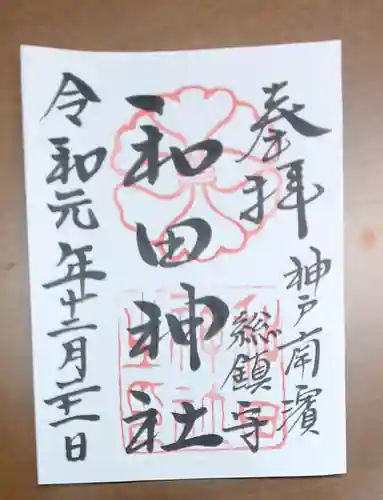 奉拝
神戸南濱
総鎮守
和田神社
令和元年十二月廿一日